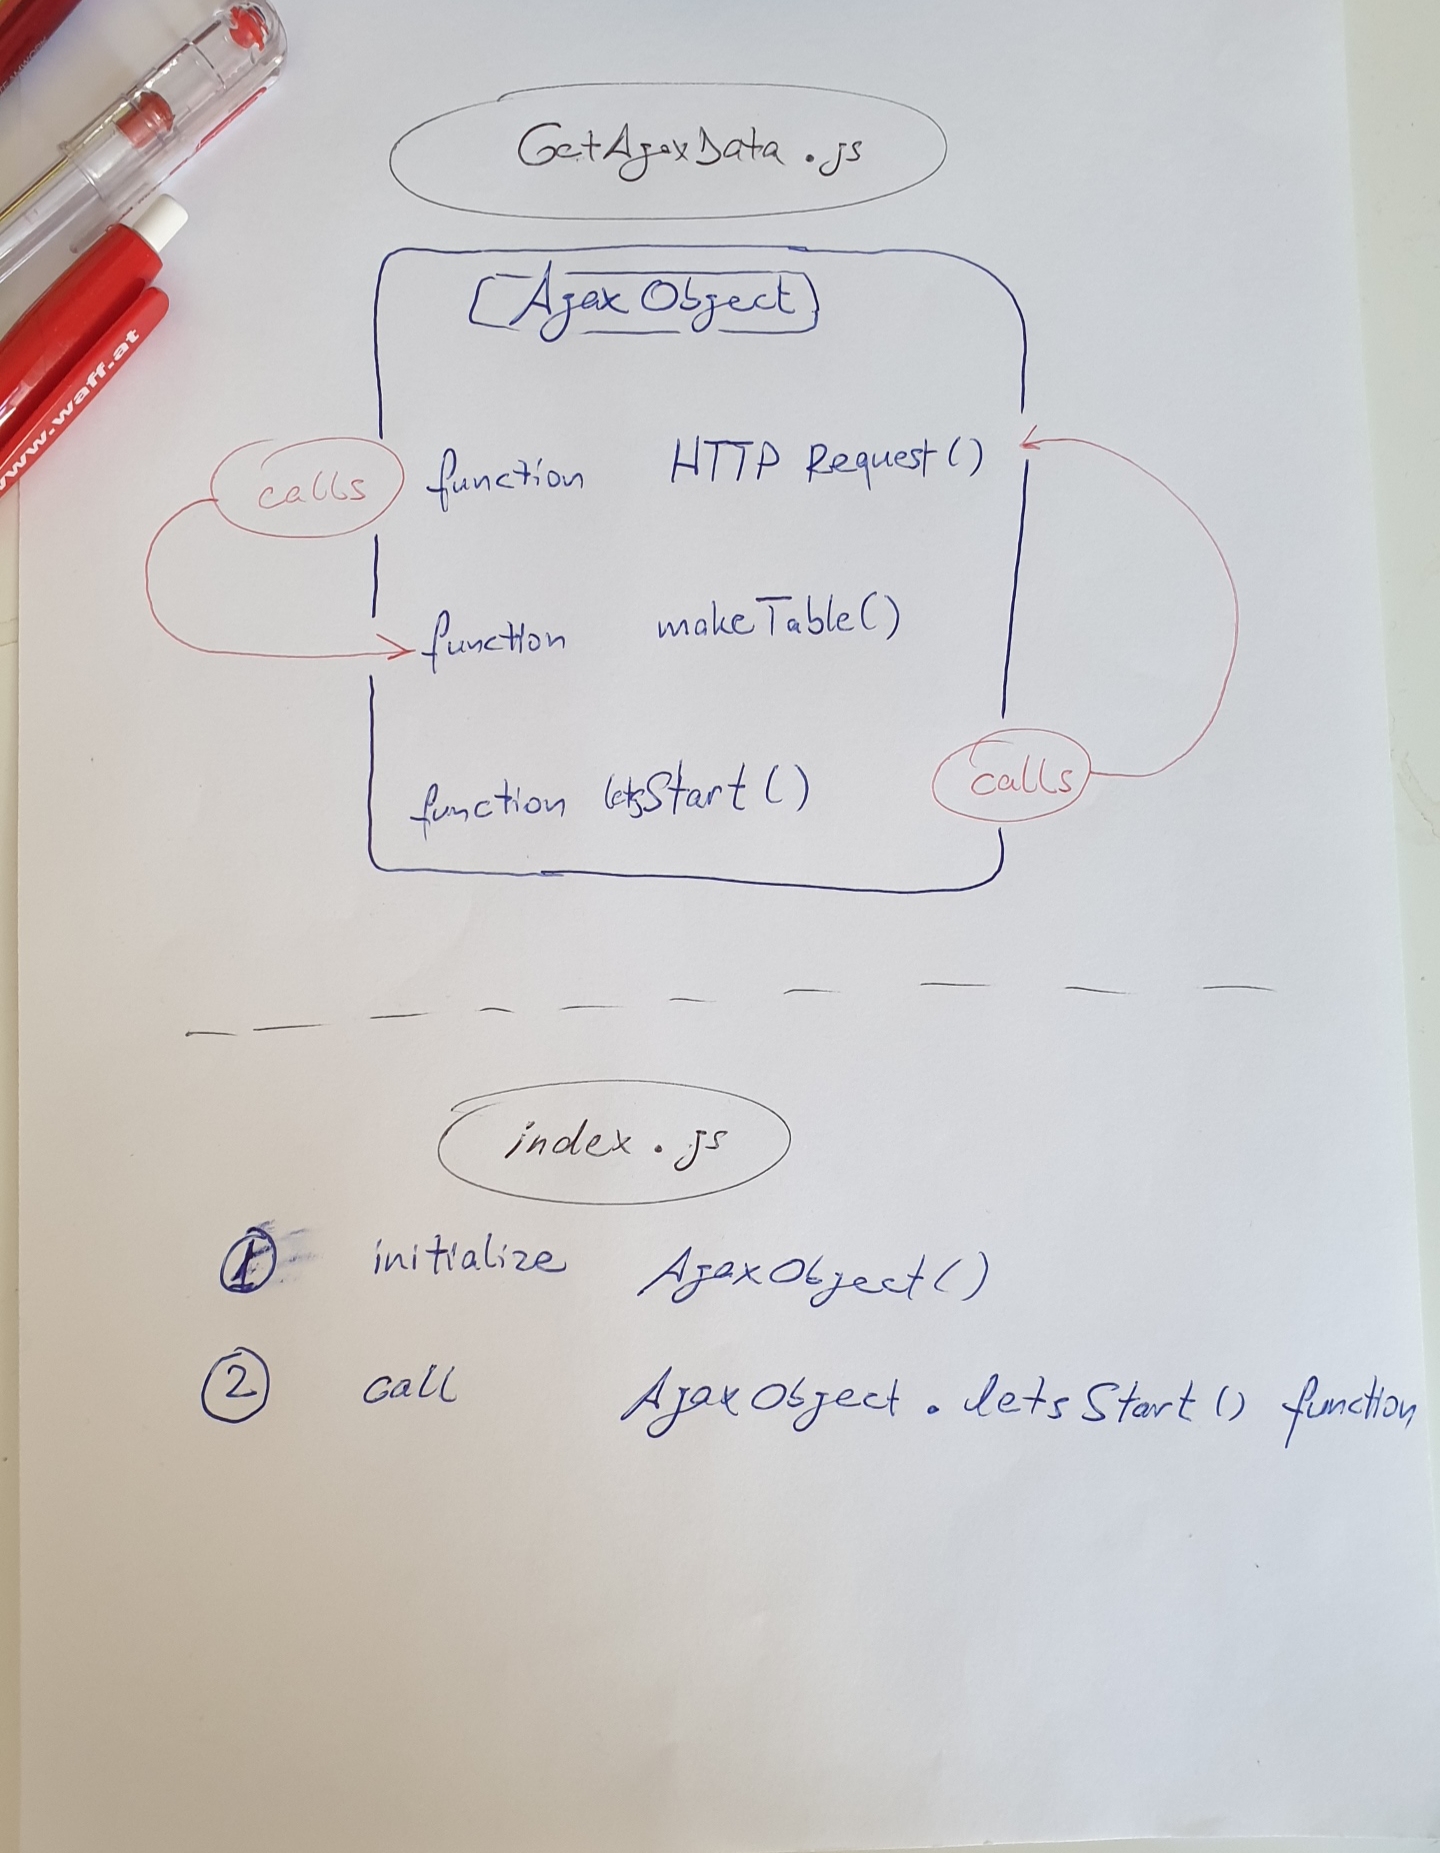 GetAjaxData.js
AjaxObject
calls function HTTP Request()
function makeTable()
function letsStart() calls
index.js
1 initialize AjaxObject()
2 call AjaxObject.letsStart() function
www.waff.at